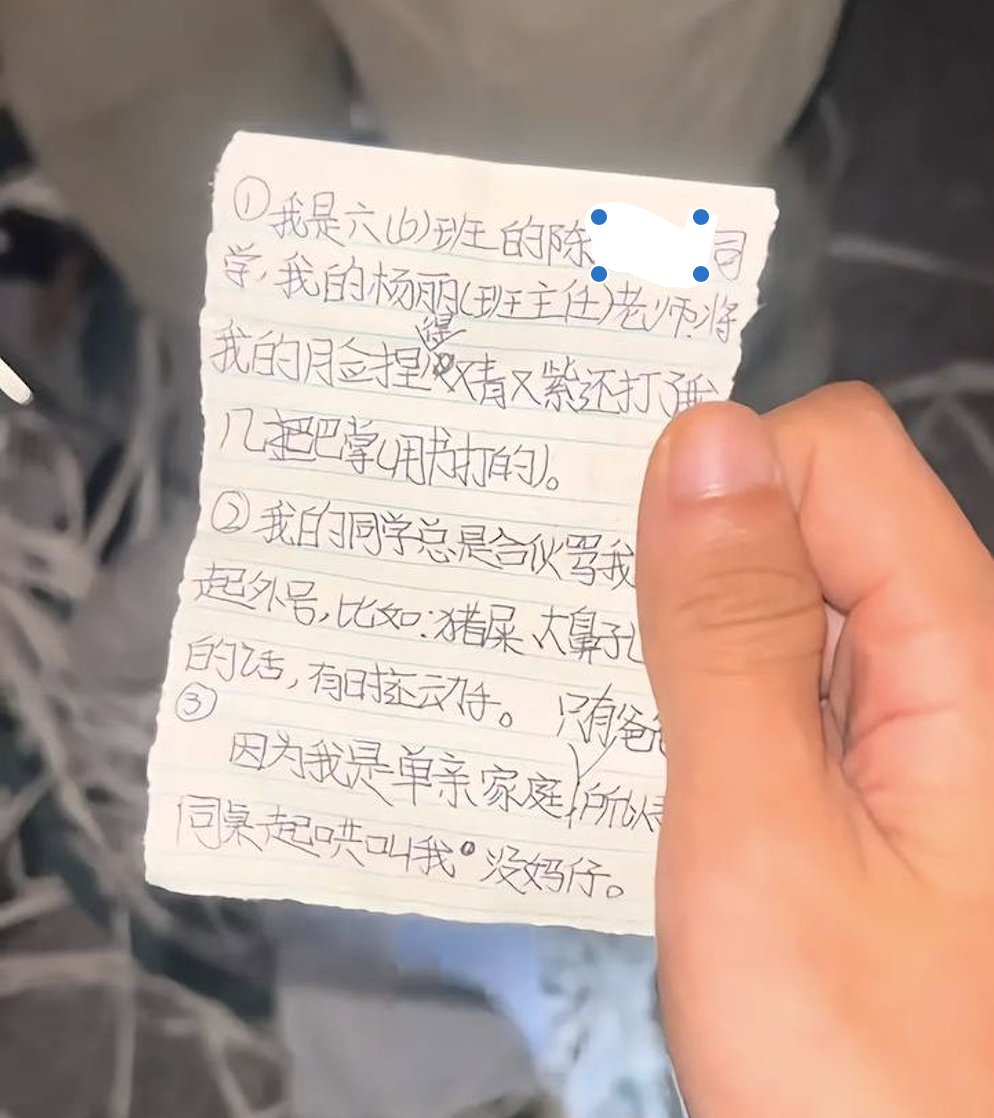 ①我是六(6)班的陈 同
学,我的杨丽(班主任)老师将
我的脸捏得又青又紫还打了我
几把巴掌(用书打的)。
②我的同学总是合伙骂我
起外号,比如:猪屎、大鼻孔
的话,有时还动手。
③
只有爸爸
因为我是单亲家庭 所以
同桌起哄叫我 没妈仔。